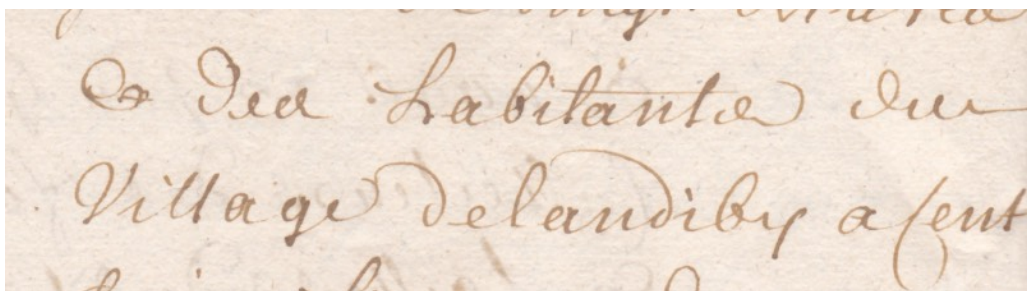 & des habitants du
Village delandiby a sent